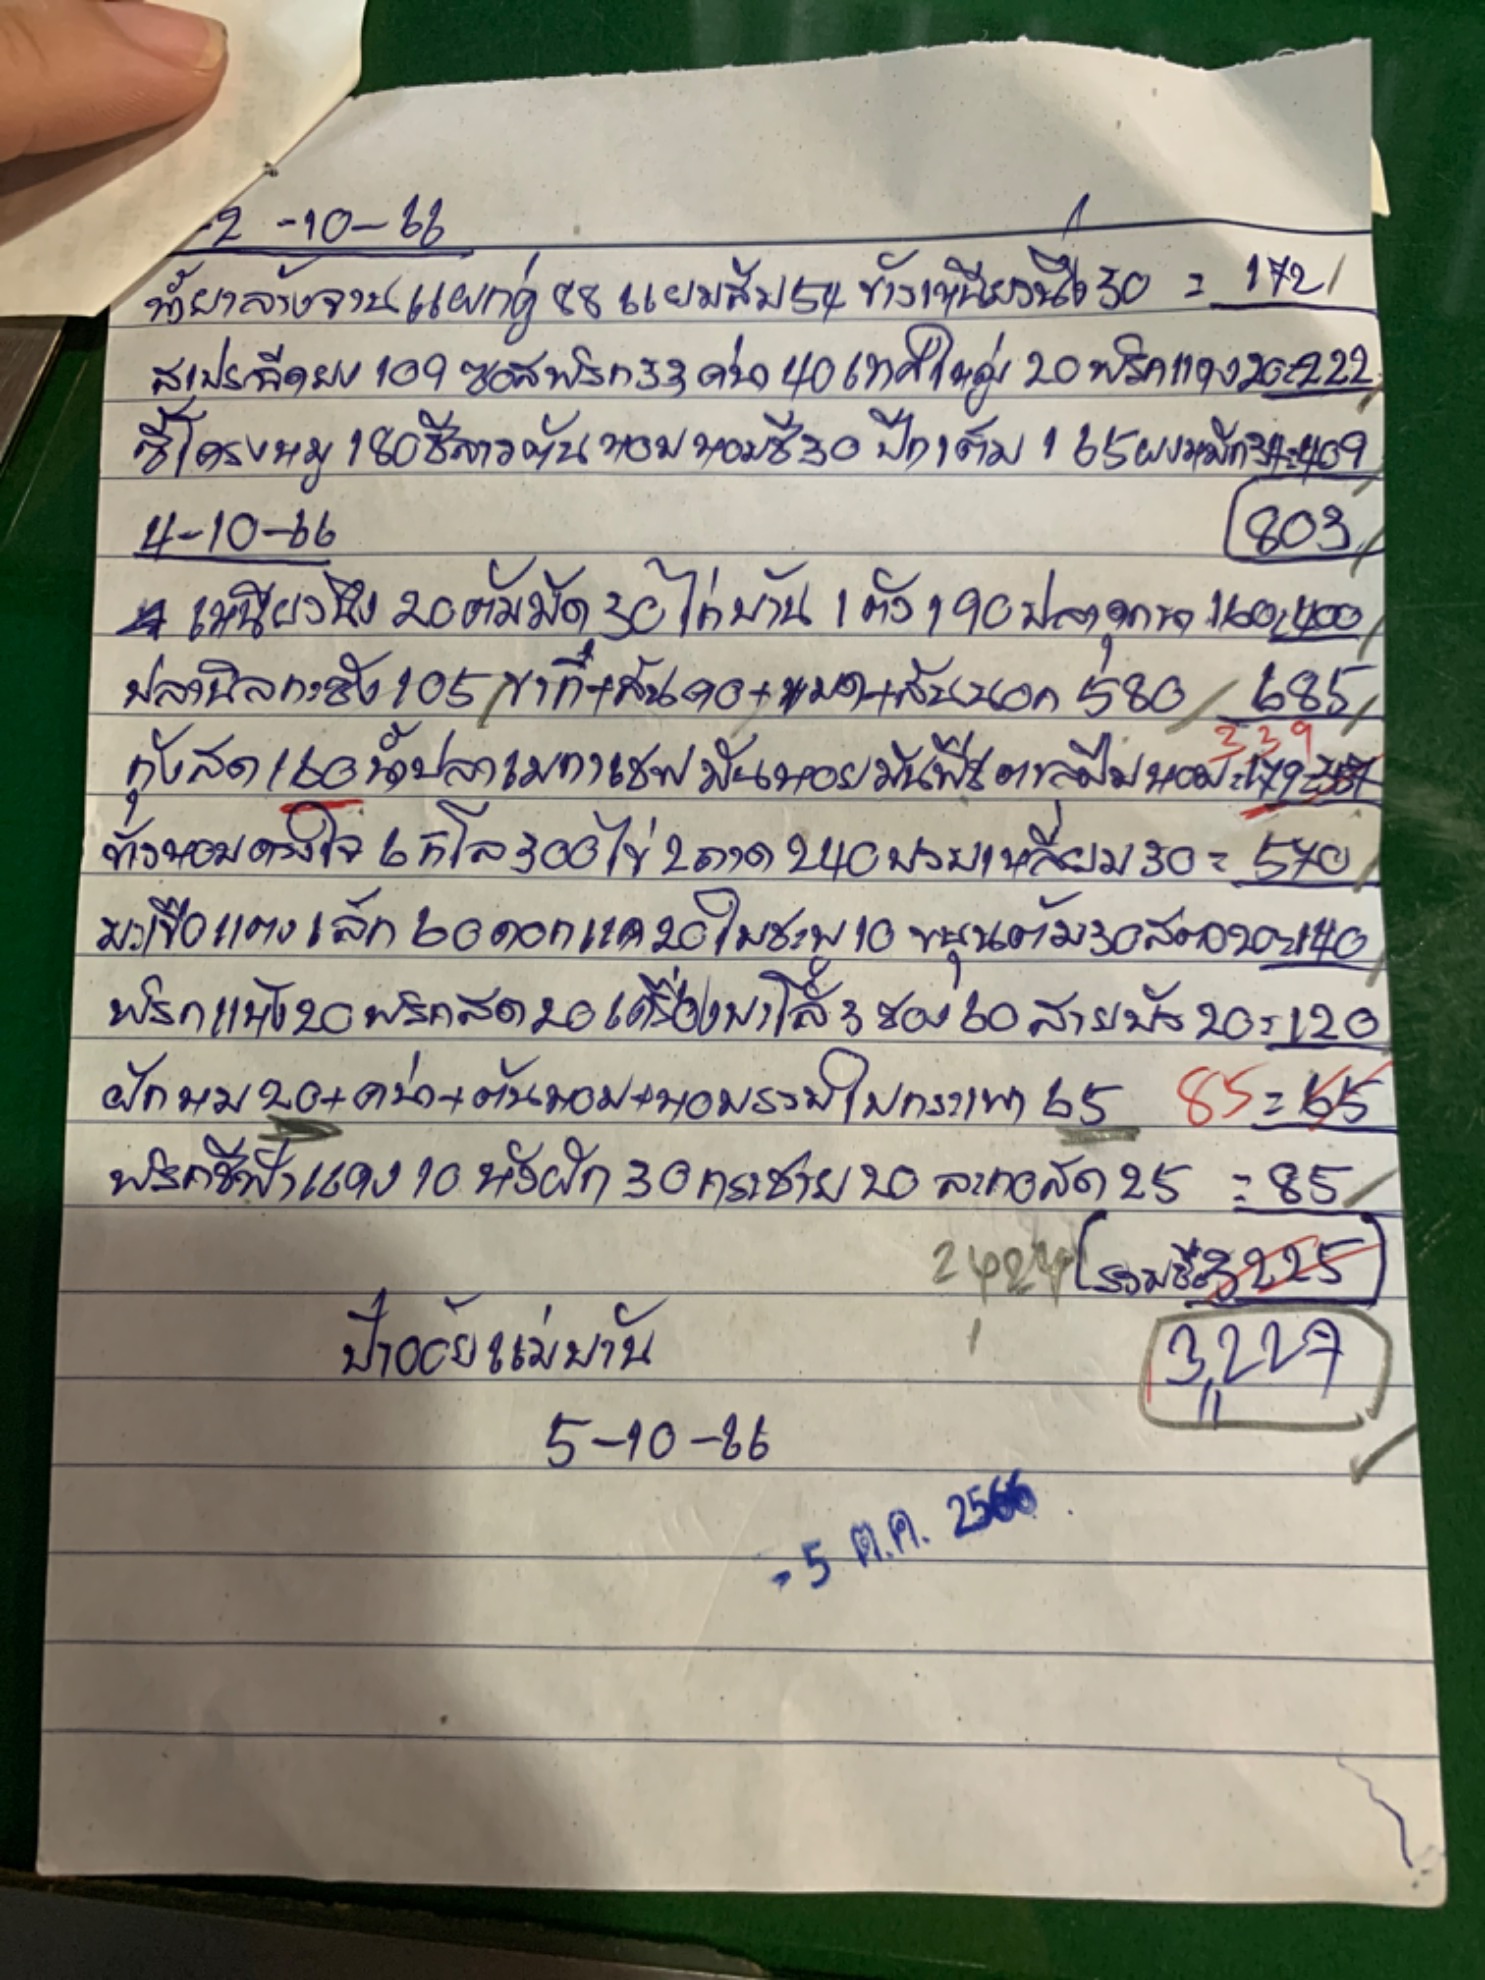 2 -10-66
น้ำยาล้างจานแผกคู่ 88 แยมส้ม 54 ข้าวเหนียวนึ่ง 30 = 172
สเปรฉีดยุง 109 ซอสพริก 33 คน่า 40 เทศใหญ่ 20 พริกแดง 20=222
ซี่โครงหมู 180 ชีลาวต้นหอมหอมชี 30 ปีกเต็ม 165 ผงหมัก 34=409
4-10-66 803
เหนียวนึ่ง 20 ต้มมัด 30 ไก่บ้าน 1 ตัว 190 ปลาดุกนา 160=400
ปลานิลกะชัง 105 ขาที่+สันคอ+หมด+สันนอก 580 685
339
กุ้งสด 160 น้ำปลาเมกาเชฟมันหอยมันพืช หอม=179
ข้าวหอม 6 กิโล 300 ไข่ 2 ถาด 240 บวบเหลี่ยม 30 = 570
มะเขือแตงเล็ก 60 ดอกแค 20 ใบชะพู 10 ขนุนต้ม 30 สตอ 20=140
พริกแห้ง 20 พริกสด 20 เครื่องพะโล้ 3 ซอง 60 สายบัว 20=120
ผักหม 20+คน่า+ต้นหอม+หอมรวมใบกระเพา 65 85 = 65
พริกชี้ฟ้าแดง 10 ถั่วฝัก 30 กระชาย 20 ละกอสัด 25 = 85
2424 รวมซื้อ 3225
ป้าอ้อยแม่บ้าน 3,227
5-10-66
-5 ต.ค. 2566